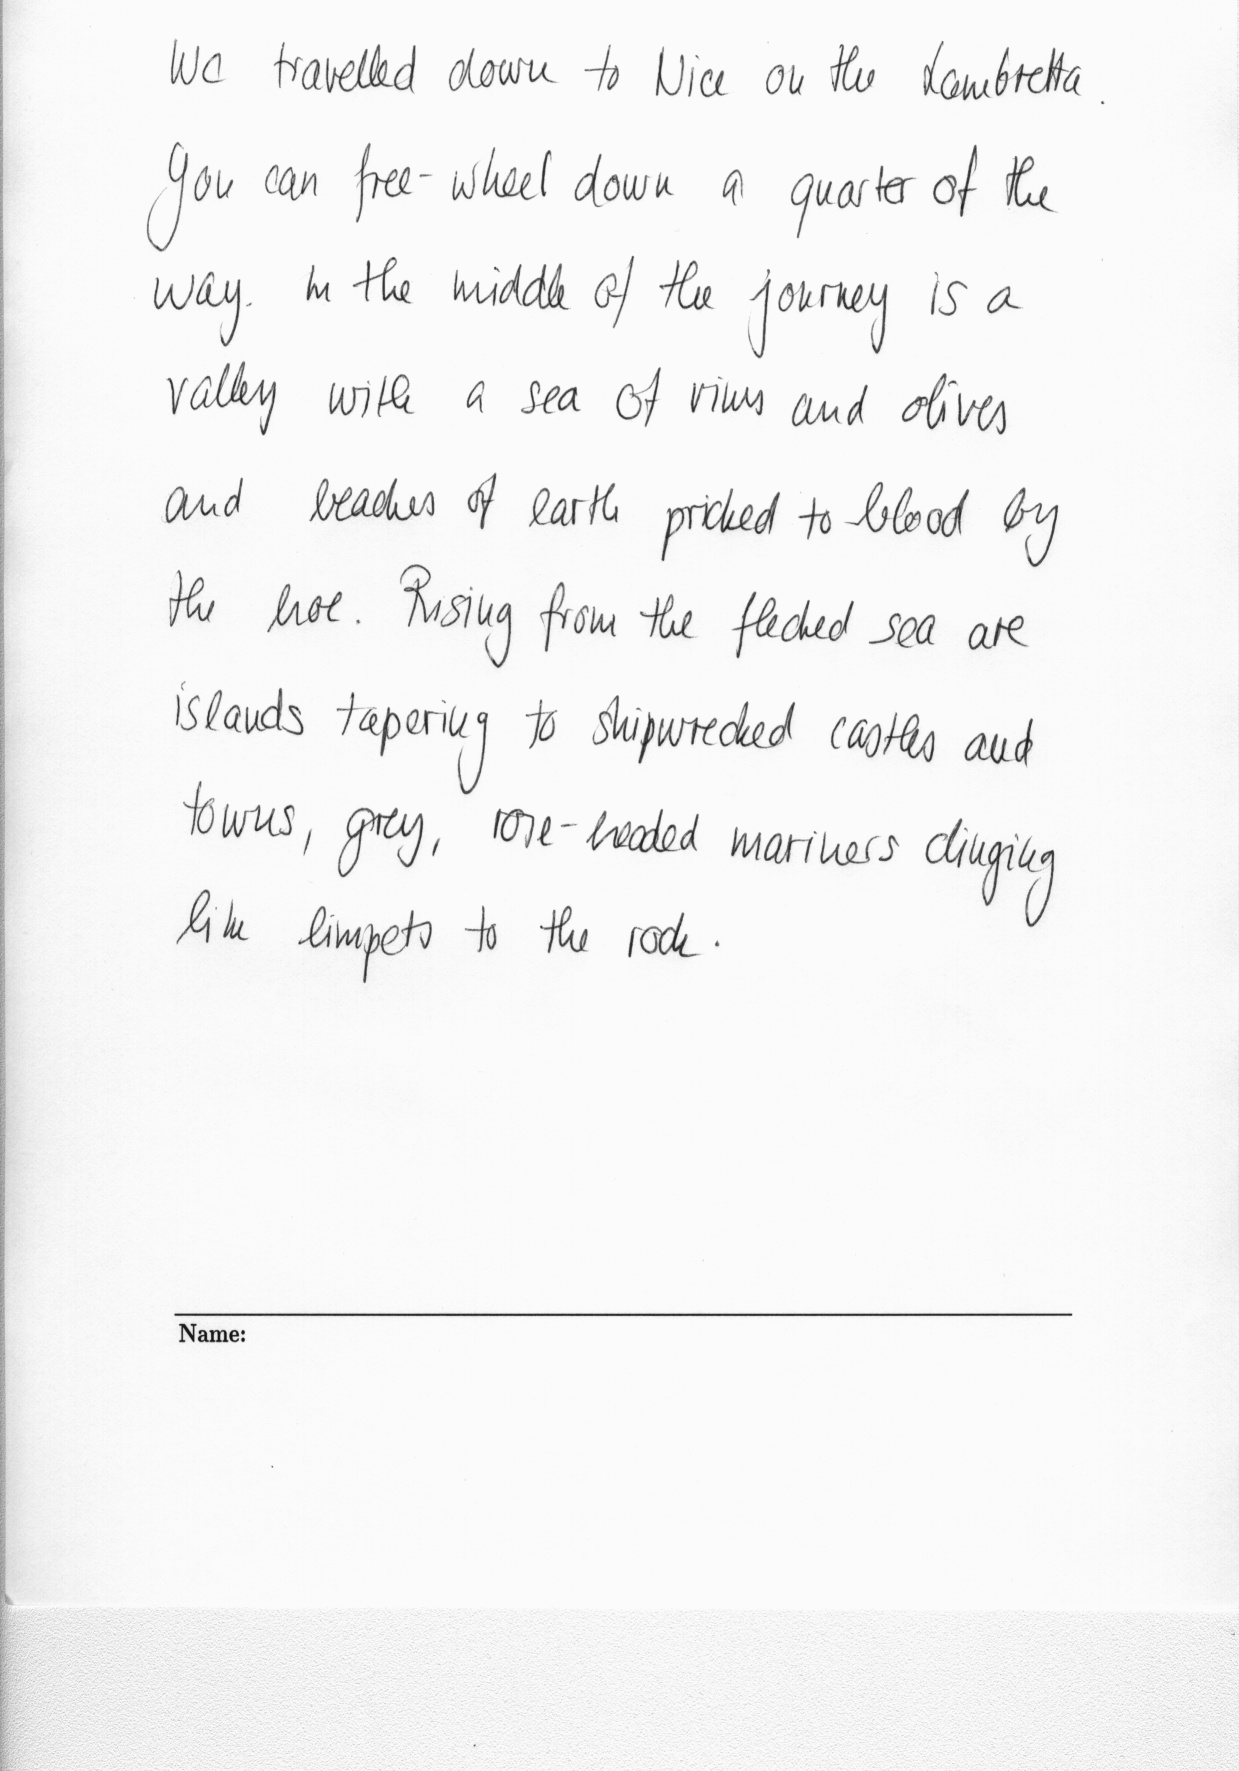 We travelled down to Nice on the Lambretta.
You can free-wheel down a quarter of the
way. In the middle of the journey is a
valley with a sea of vines and olives
and beaches of earth pricked to blood by
the hoe. Rising from the flecked sea are
islands tapering to shipwrecked castles and
towns, grey, rose-headed mariners clinging
like limpets to the rock.
Name: